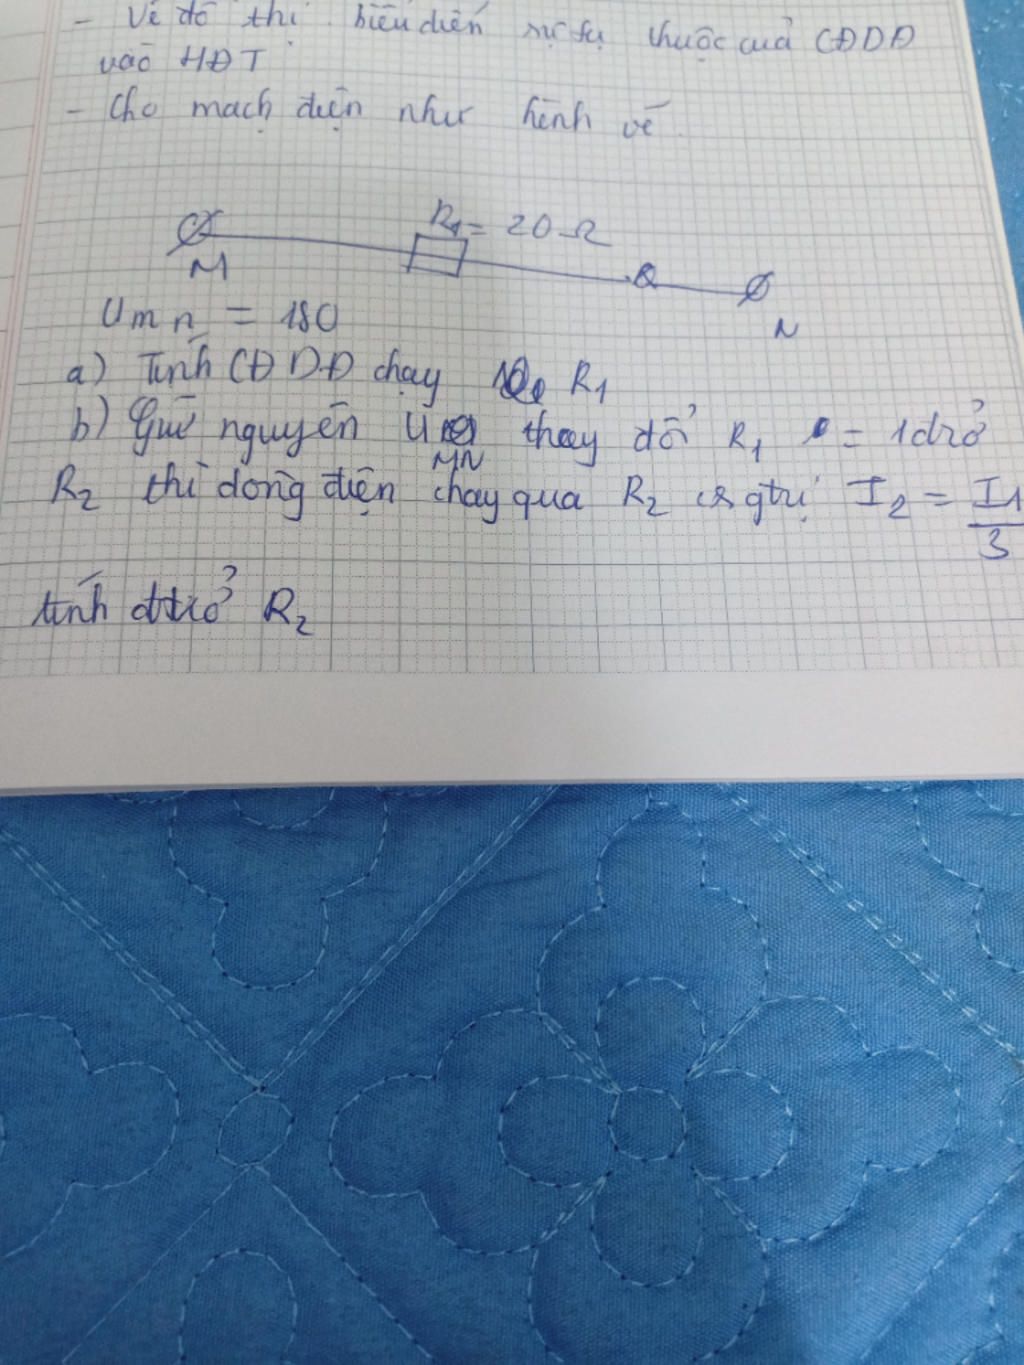 - Vẽ đồ thị biểu diễn sự fụ thuộc của CĐDĐ
vào HĐT
- Cho mạch điện như hình vẽ.
R1 = 20 Ω
M
N
Umn = 180
a) Tính CĐDĐ chạy R1
b) Giữ nguyên U MN thay đổi R1 = 1 đtrở
R2 thì dòng điện chạy qua R2 có gtrị I2 = I1/3
tính đtrở R2